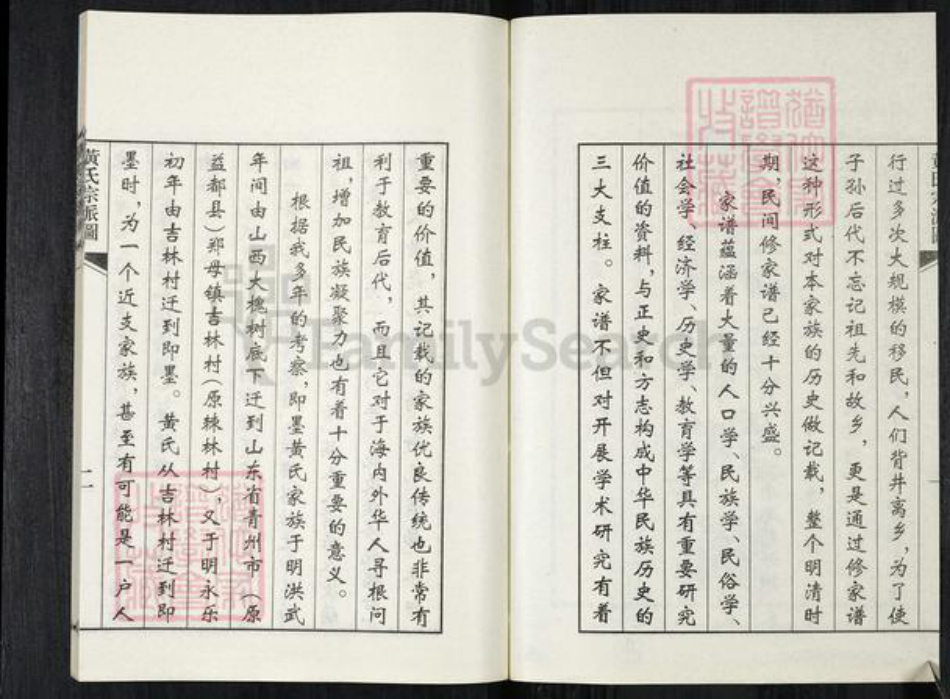 行过多次大规模的移民,人们背井离乡,为了使
子孙后代不忘记祖先和故乡,更是通过修家谱
这种形式对本家族的历史做记载,整个明清时
期民间修家谱已经十分兴盛。
家谱蕴涵着大量的人口学、民族学、民俗学、
社会学、经济学、历史学、教育学等具有重要研究
价值的资料,与正史和方志构成中华民族历史的
三大支柱。家谱不但对开展学术研究有着
重要的价值,其记载的家族优良传统也非常有
利于教育后代,而且它对于海内外华人寻根问
祖,增加民族凝聚力也有着十分重要的意义。
根据我多年的考察,即墨黄氏家族于明洪武
年间由山西大槐树底下迁到山东省青州市(原
益都县)郑母镇吉林村(原棘林村),又于明永乐
初年由吉林村迁到即墨。黄氏从吉林村迁到即
墨时,为一个近支家族,甚至有可能是一户人
黄氏宗派圖
二
FamilySearch